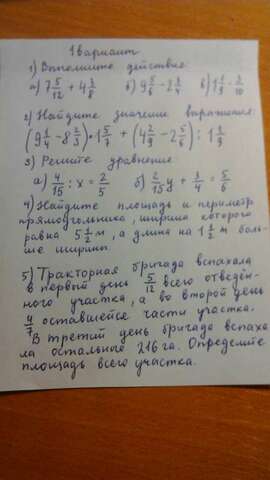 1 вариант
1) Выполните действие
а) 7 5/12 + 4 3/8 б) 9 5/6 - 2 3/4 в) 1 1/9 · 3/10
2) Найдите значение выражения:
(9 1/4 - 8 2/3) · 1 5/7 + (4 2/9 - 2 5/6) : 1 1/9
3) Решите уравнение
а) 4/15 : x = 2/5 б) 2/15 y + 3/4 = 5/6
4) Найдите площадь и периметр
прямоугольника, ширина которого
равна 5 1/2 м, а длина на 1 1/2 м боль-
ше ширины.
5) Тракторная бригада вспахала
в первый день 5/12 всего отведён-
ного участка, а во второй день
4/7 оставшейся части участка.
В третий день бригада вспаха
ла остальные 216 га. Определите
площадь всего участка.